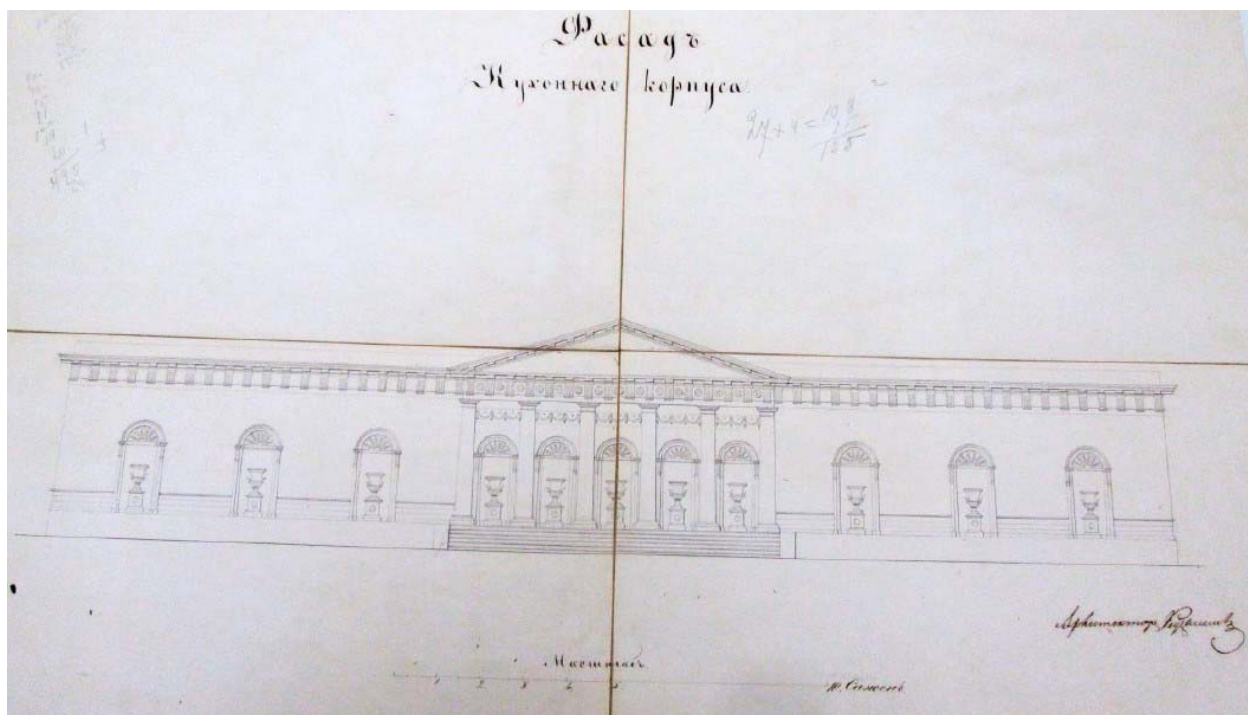 Фасадъ
Кухоннаго корпуса.
27 × 4 = 108
Архитекторъ
Масштабъ
1 2 3 4 5 10. Саженъ